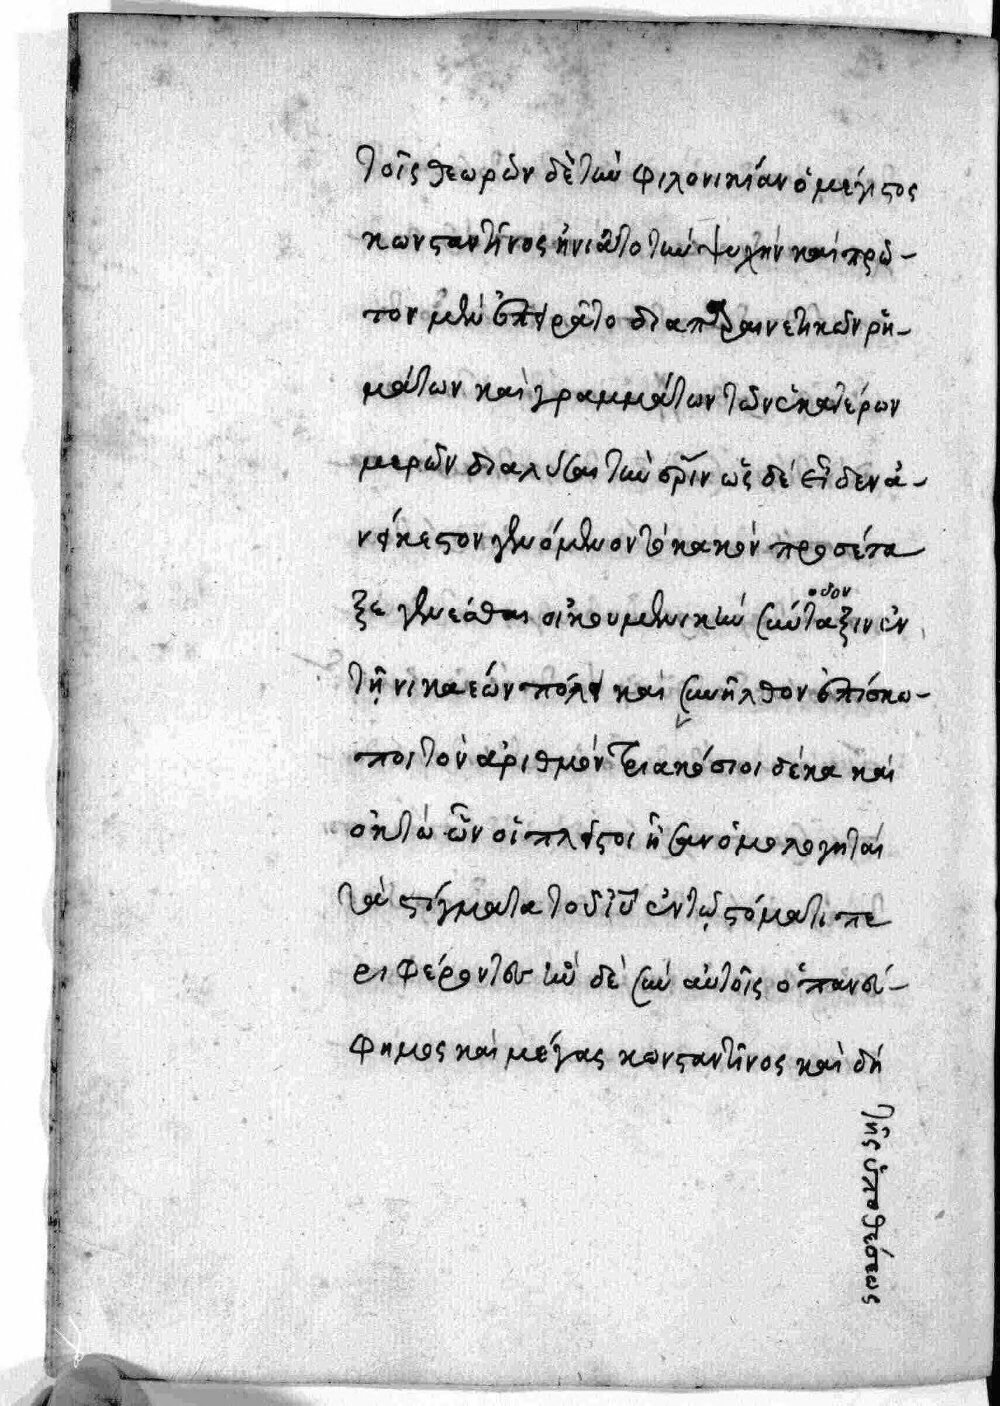 τοῖς θεωρῶν δὲ τὴν φιλονικίαν ὁ μέγιστος
κωνσταντῖνος ἠνιᾶτο τὴν ψυχὴν καὶ πρῶ-
τον μὲν ἐπειρᾶτο διαπαραινετικῶν ῥη-
μάτων καὶ γραμμάτων τῶν ἑκατέρων
μερῶν διαλῦσαι τὴν ἔριν ὡς δὲ εἶδεν ἀ-
νήκεστον γενόμενον τὸ κακὸν προσέτα
ξε γενέσθαι οἰκουμενικὴν σύνταξιν ἐν
οδον
τῇ νικαέων πόλει καὶ συνῆλθον ἐπίσκο-
ποι τὸν ἀριθμὸν τριακόσιοι δέκα καὶ
ὀκτώ ὧν οἱ πλεῖστοι ἦσαν ὁμολογηταί
τὰ στίγματα τοῦ ιυ ἐν τῷ σόματι πε
ριφέροντες ἦν δὲ σὺν αὐτοῖς ὁ πανεύ-
φημος καὶ μέγας κωνσταντῖνος καὶ δή
τῆς ὑποθέσεως